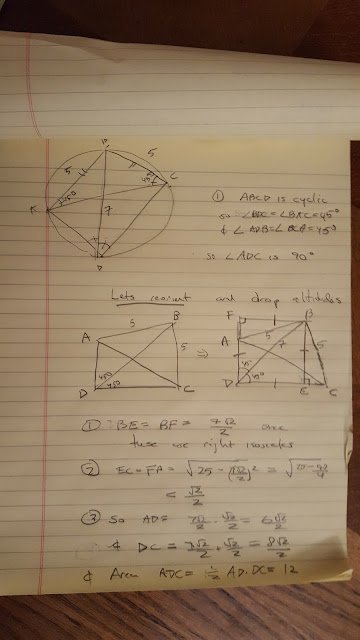 B
5
5
45°
C
A
45°
7
D
① ABCD is cyclic
so ∠BDC = ∠BAC = 45°
& ∠ADB = ∠BCA = 45°
so ∠ADC is 90°
Lets reorient and drop altitudes
A B 5 5 D 45° 45° C
⇒
F B A 7 5 D 45 45° E C
① BE = BF = 7√2/2 since
these are right isosceles
② EC = FA = √25 - (7√2/2)² =
= √2/2
③ So AD = √2/2 = 6√2/2
& DC = 7√2/2 + √2/2 = 8√2/2
& Area ADC = 1/2 AD.DC = 12